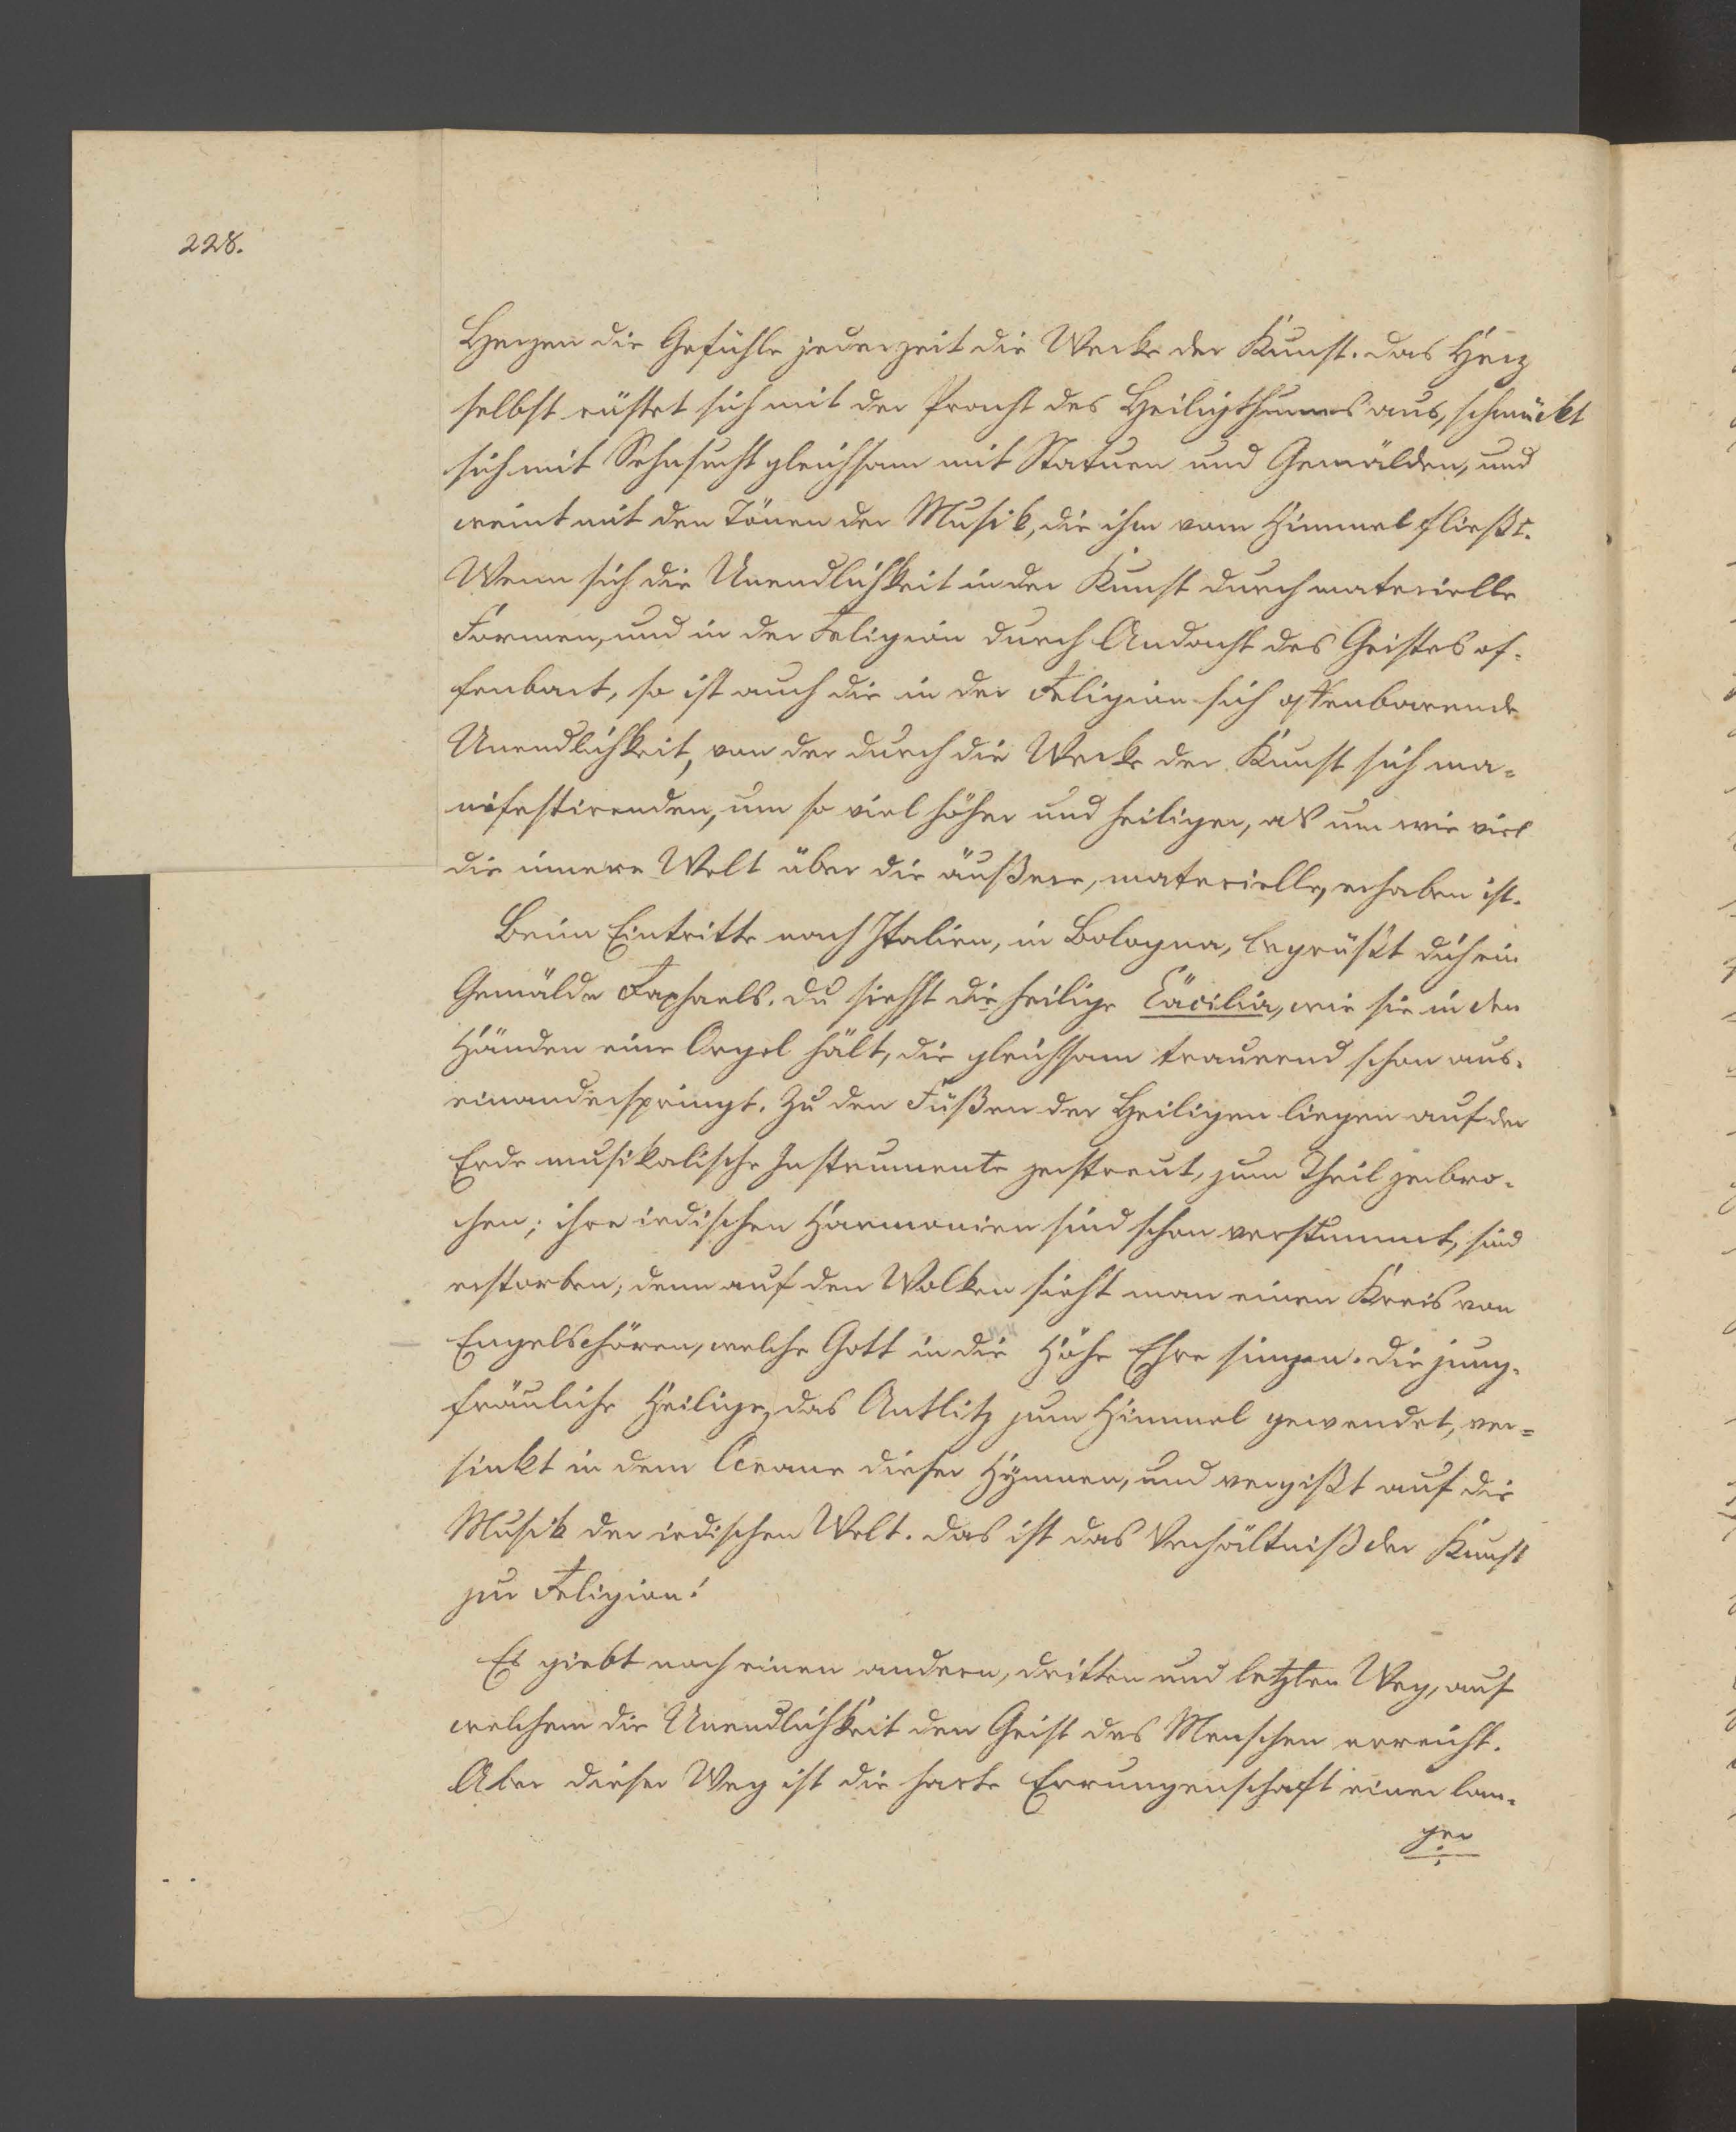 228.
Herzen die Gefühle jederzeit die Werke der Kunst. Das Herz
selbst rüstet sich mit der Pracht des Heiligthumes aus, schmückt
sich mit Sehnsucht gleichsam mit Statuen und Gemälden, und
weint mit den Tönen der Musik, die ihm vom Himmel fließt.
Wenn sich die Unendlichkeit in der Kunst durch materielle
Formen, und in der Religion durch Andacht des Geistes of-
fenbart, so ist auch die in der Religion sich offenbarende
Unendlichkeit, von der durch die Werke der Kunst sich ma-
nifestirenden, um so viel höher und heiliger, als um wie viel
die innere Welt über die äußere, materielle, erhaben ist.
Beim Eintritte nach Italien, in Bologna, begrüßt dich ein
Gemälde Raphaels. Du siehst die heilige Cäcilia, wie sie in den
Händen eine Orgel hält, die gleichsam trauernd schon aus-
einanderspringt. Zu den Füßen der Heiligen liegen auf der
Erde musikalische Instrumente zerstreut, zum Theil zerbro-
chen; ihre irdischen Harmonien sind schon verstummt, sind
erstorben, denn auf den Wolken sieht man einen Kreis von
Engelschören, welche Gott in die Höhe Ehre singen. Die jung-
fräuliche Heilige, das Antlitz zum Himmel gewendet, ver-
sinkt in dem Oceane dieser Hymnen, und vergißt auf die
Musik der irdischen Welt. Das ist das Verhältniß der Kunst
zur Religion!
Es giebt noch einen andern, dritten und letzten Weg, auf
welchem die Unendlichkeit den Geist des Menschen erreicht.
Aber dieser Weg ist die harte Errungenschaft einer lan-
gen